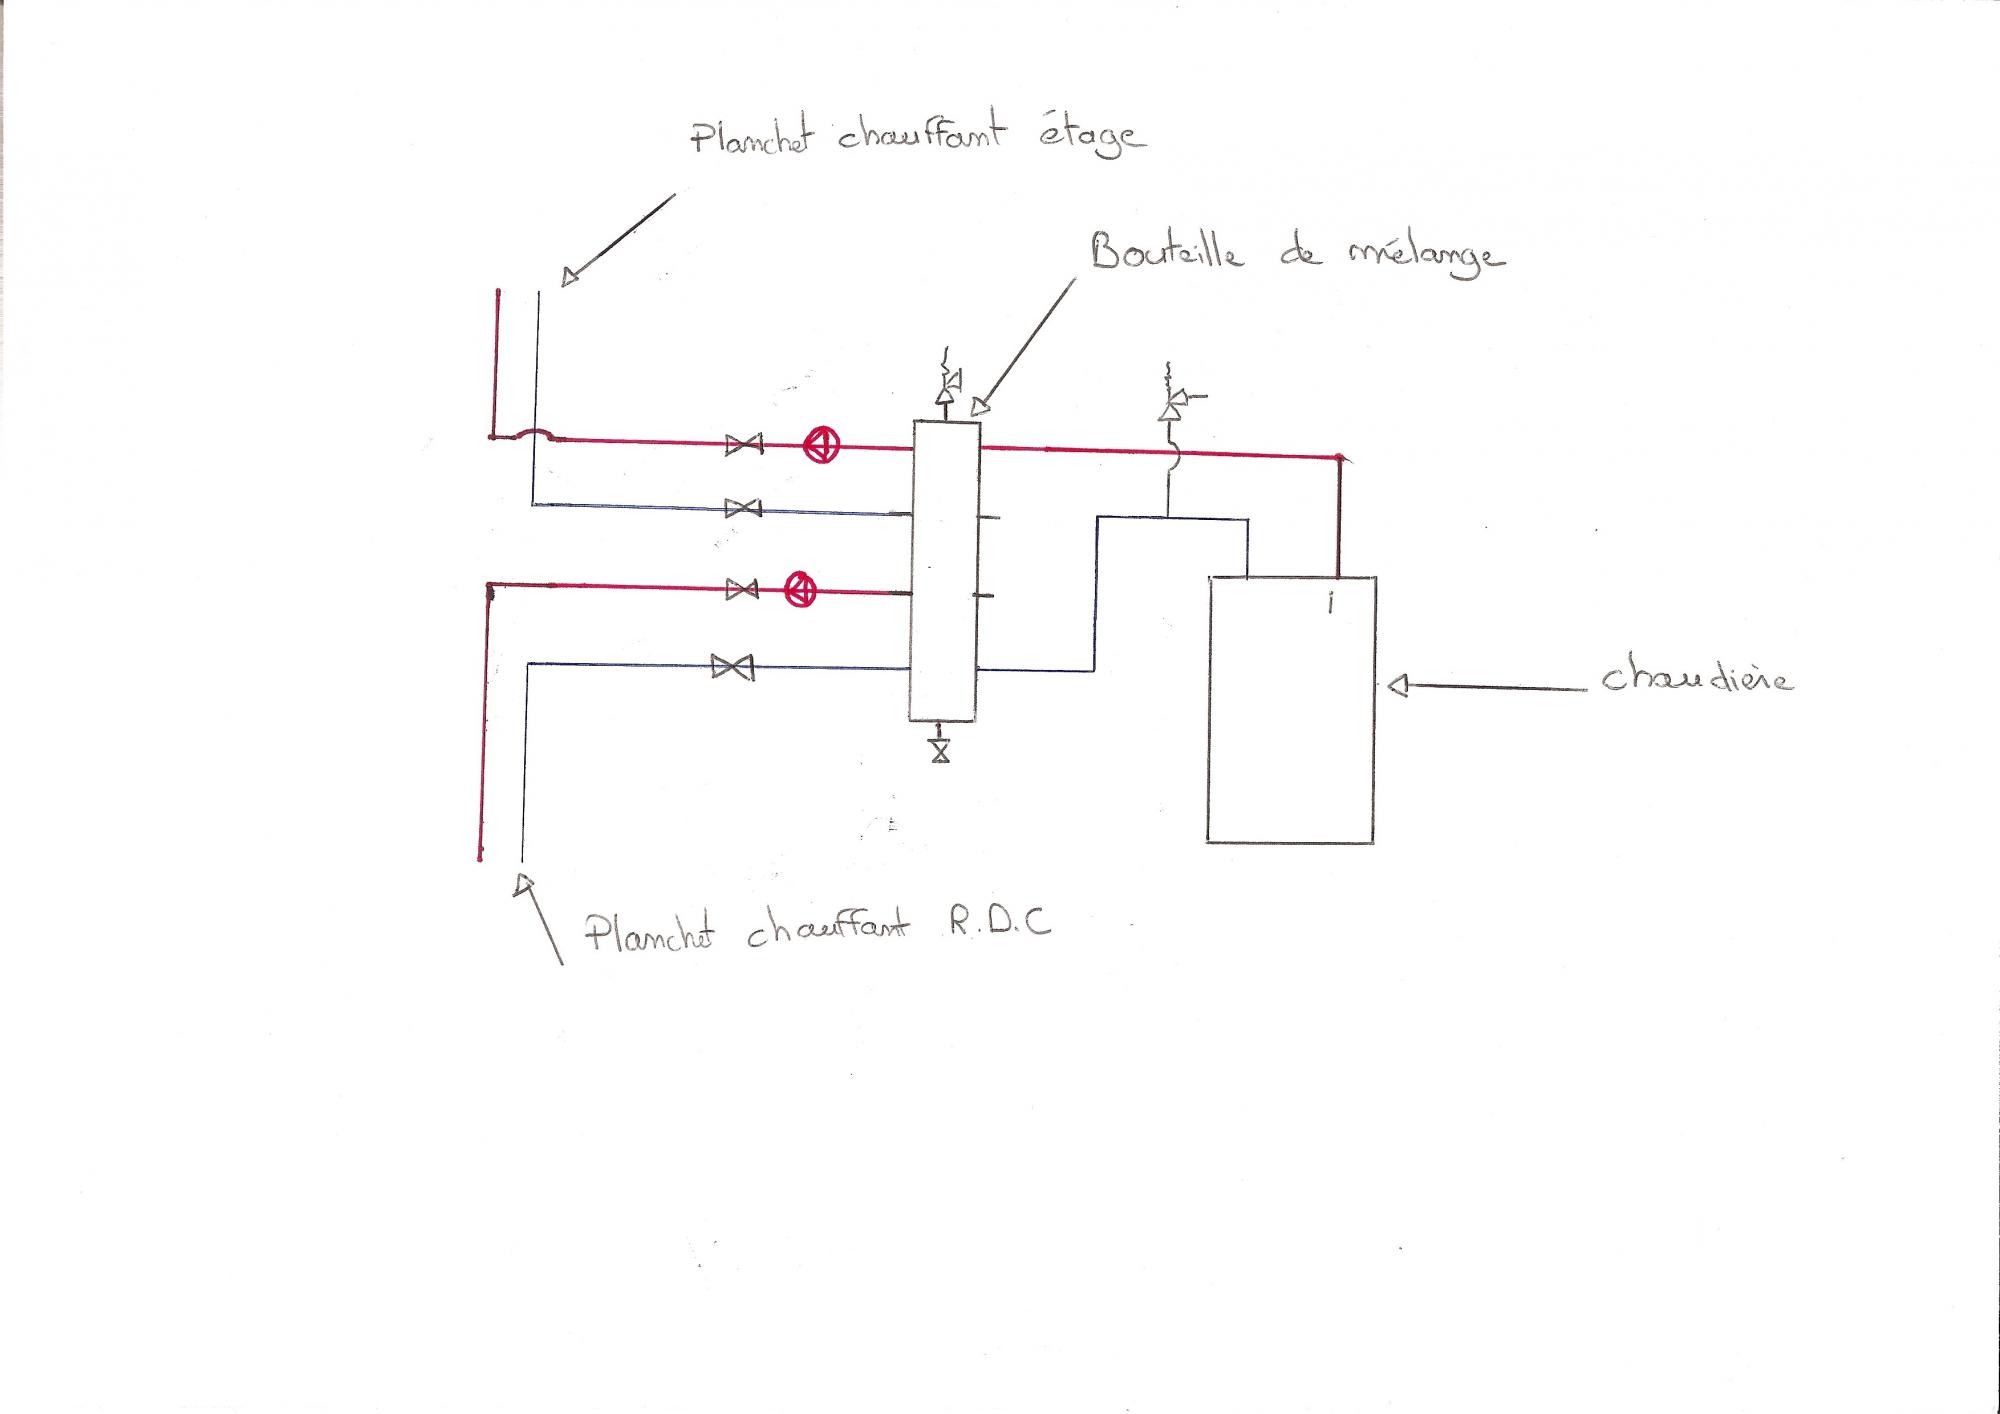 Planchet chauffant étage
Bouteille de mélange
i
chaudière
Planchet chauffant R.D.C